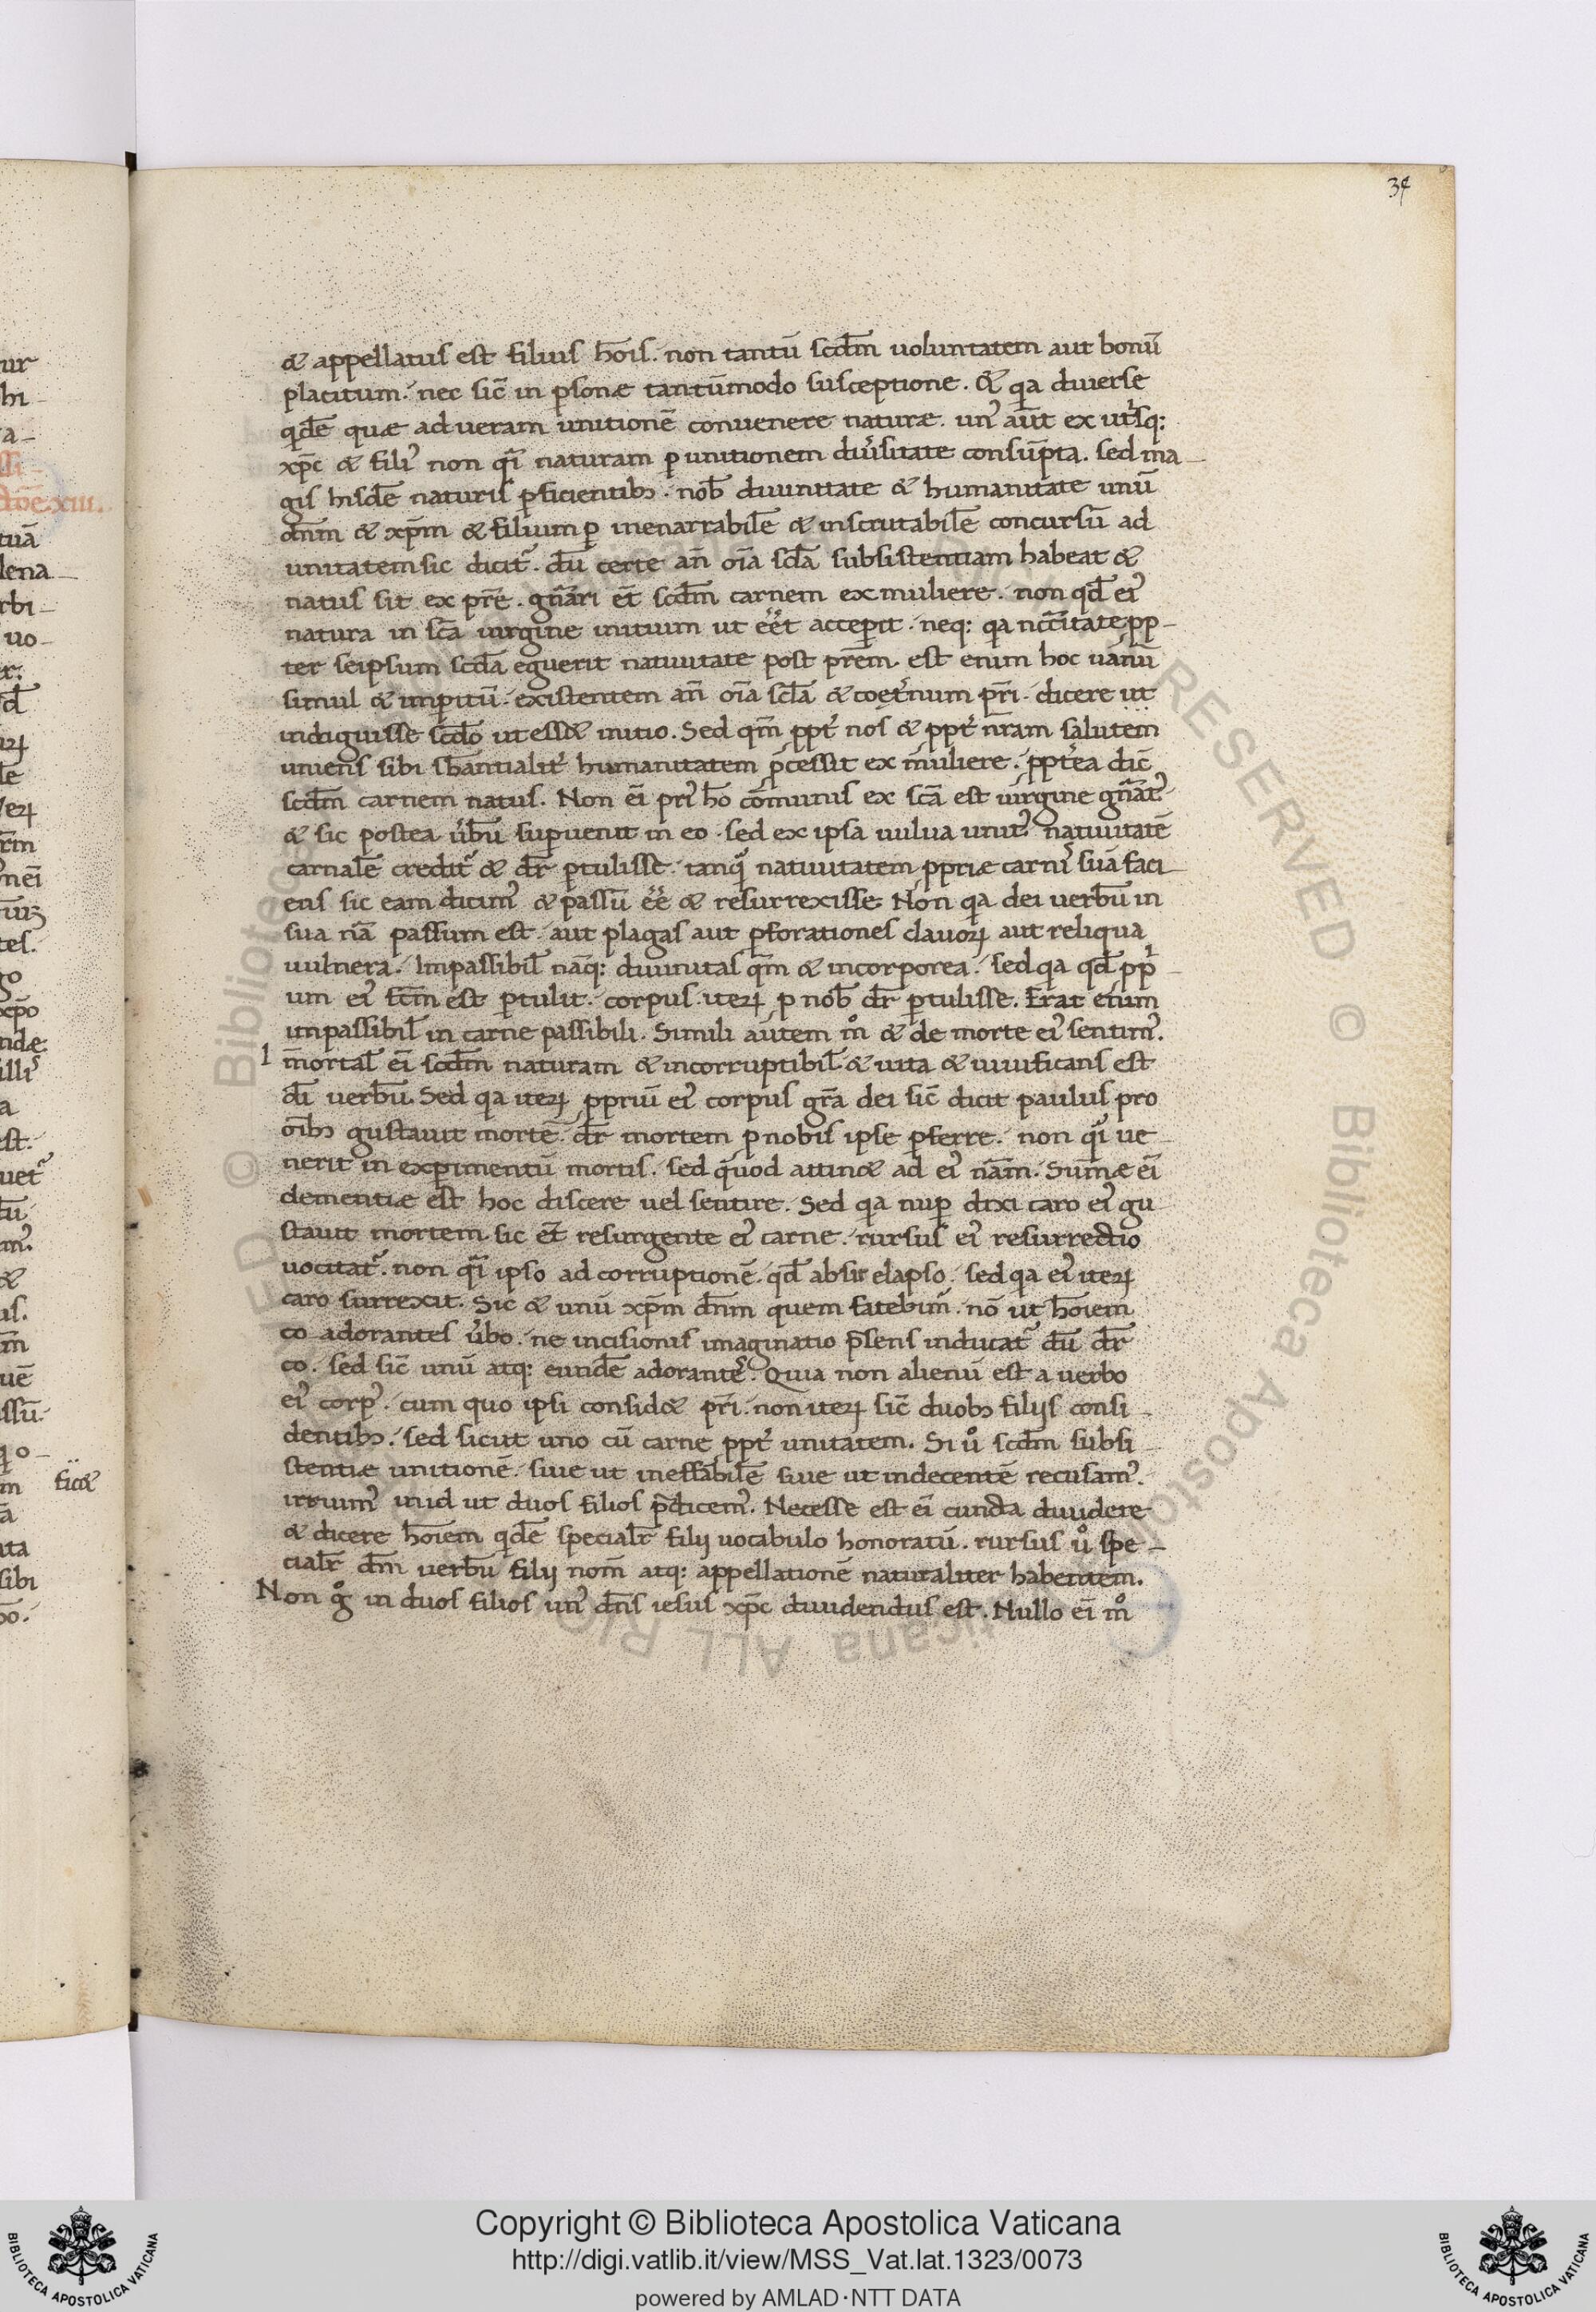 34
& appellatus est filius ho͞is. non tantū scd͞m uoluntatem aut bonū
placitum. nec sic̄ in p̱sonæ tantūmodo susceptione. & qa diuerse
qd̄e quæ ad ueram unitionē conuenere naturæ. un᾽ aūt ex utrisq:
xp̄c & fili᾽ non qī naturam p̱ unitionem diu͛sitate consūpta. sed ma-
gis hisdē naturis p̱ficientibꝫ. nob̄ diuinitate & humanitate unū
dn̄m & xp̄m & filium p̱ inenarrabilē & inscrutabilē concursū ad
unitatem sic dicit᾽. dū certe an̄ oīa scl̄a subsistentiam habeat &
natus sit ex pr̄e. gn̄ari et̄ scd͞m carnem ex muliere. non qd̄ ei᾽
natura in sc̄a uirgine initium ut eēt acceperit. neq: qa nc̄citate pp̱-
ter seipsum scd̄a eguerit natiuitate post pr̄em. est enim hoc uanū
simul & imp̱itū. existentem an̄ oīa scl̄a & coet͛num pr̄i. dicere ut
indiguisse scd̄o ut ess& initio. Sed qm̄ pp̱t͛ nos & pp̱t͛ nr̄am salutem
uniens sibi sb̄antialit͛ humanitatem p͛cessit ex muliere. pp̱t͛ea dic̄
scd͞m carnem natus. Non ei̅ pri᾽ hō cōmunis ex sc̄a est uirgine gn̄at᾽.
& sic postea u͛bū sup̱uenit in eo. sed ex ipsa uulua unit᾽ natiuitatē
carnalē credit᾽ & dr̄ p̱tulisse. tanq̄ natiuitatem pp̱riæ carni᾽ suā faci-
ens sic eam dicim᾽ & passū eē & resurrexisse. Non qa dei uerbū in
sua nā passum est. aut plagas aut p̱forationes clauoꝝ aut reliqua
uulnera. Impassibil̄ nāq: diuinitas qm̄ & incorporea. sed qa qd̄ pp̱i
um ei᾽ fc̄m est p̱tulit. corpus. iteꝝ p̱ nob̄ dr̄ p̱tulisse. Erat enim
impassibil̄ in carne passibili. Simili autem mͦ & de morte ei᾽ sentim᾽.
I mortal̄ ei̅ scd͞m naturam & incorruptibil̄. & uita & uiuificans est
dī uerbū. Sed qa iteꝝ pp̱riū ei᾽ corpus gr̄a dei sic̄ dicit paulus pro
oīb; gustauit mortē. dr̄ mortem p̱ nobis ipse p̱ferre. non qi̅ ue
nerit in exp̱imentū mortis. sed quod attin& ad ei᾽ nām. Sum̄æ ei̅
dementiæ est hoc discere uel sentire. Sed qa nup̱ dixi caro ei᾽ gu
stauit mortem. sic et̄ resurgente ei᾽ carne. rursus ei᾽ resurrectio
uocitat᾽. non qi̅ ipso ad corruptionē. qd̄ absit elapso. sed qa ei᾽ iteꝝ
caro surrexit. Sic & unū xp̄m dn̄m quem fatebim᾽. nō ut hōiem
co adorantes u͛bo. ne incisionis imaginatio p̄sens inducat᾽ dū dr̄
co. sed sic̄ unū atq: eundē adorantes. Quia non alienū est a uerbo
ei᾽ corp᾽. cum quo ipsi consid& pr̄i. non iteꝝ sic̄ duobꝫ filijs consi-
dentibꝫ. sed sicut uno cū carne pp̱t͛ unitatem. Si uͦ scd͞m subsi-
stentiæ unitionē. siue ut ineffabilē siue ut indecentē recusam᾽.
irruim᾽ inid ut duos filios p̄dicem᾽. Necesse est ei̅ cuncta diuidere
& dicere hōiem qd̄e specialr̄ filij uocabulo honoratū. rursus uͦ spe-
cialr̄ dm̄ uerbū filij nom̄ atq: appellationē naturaliter habentem.
Non gͦ in duos filios un᾽ dn̄s iesus xp̄c diuidendus est. Nullo ei̅ mͦ
Copyright © Biblioteca Apostolica Vaticana
http://digi.vatlib.it/view/MSS_Vat.lat.1323/0073
powered by AMLAD·NTT DATA